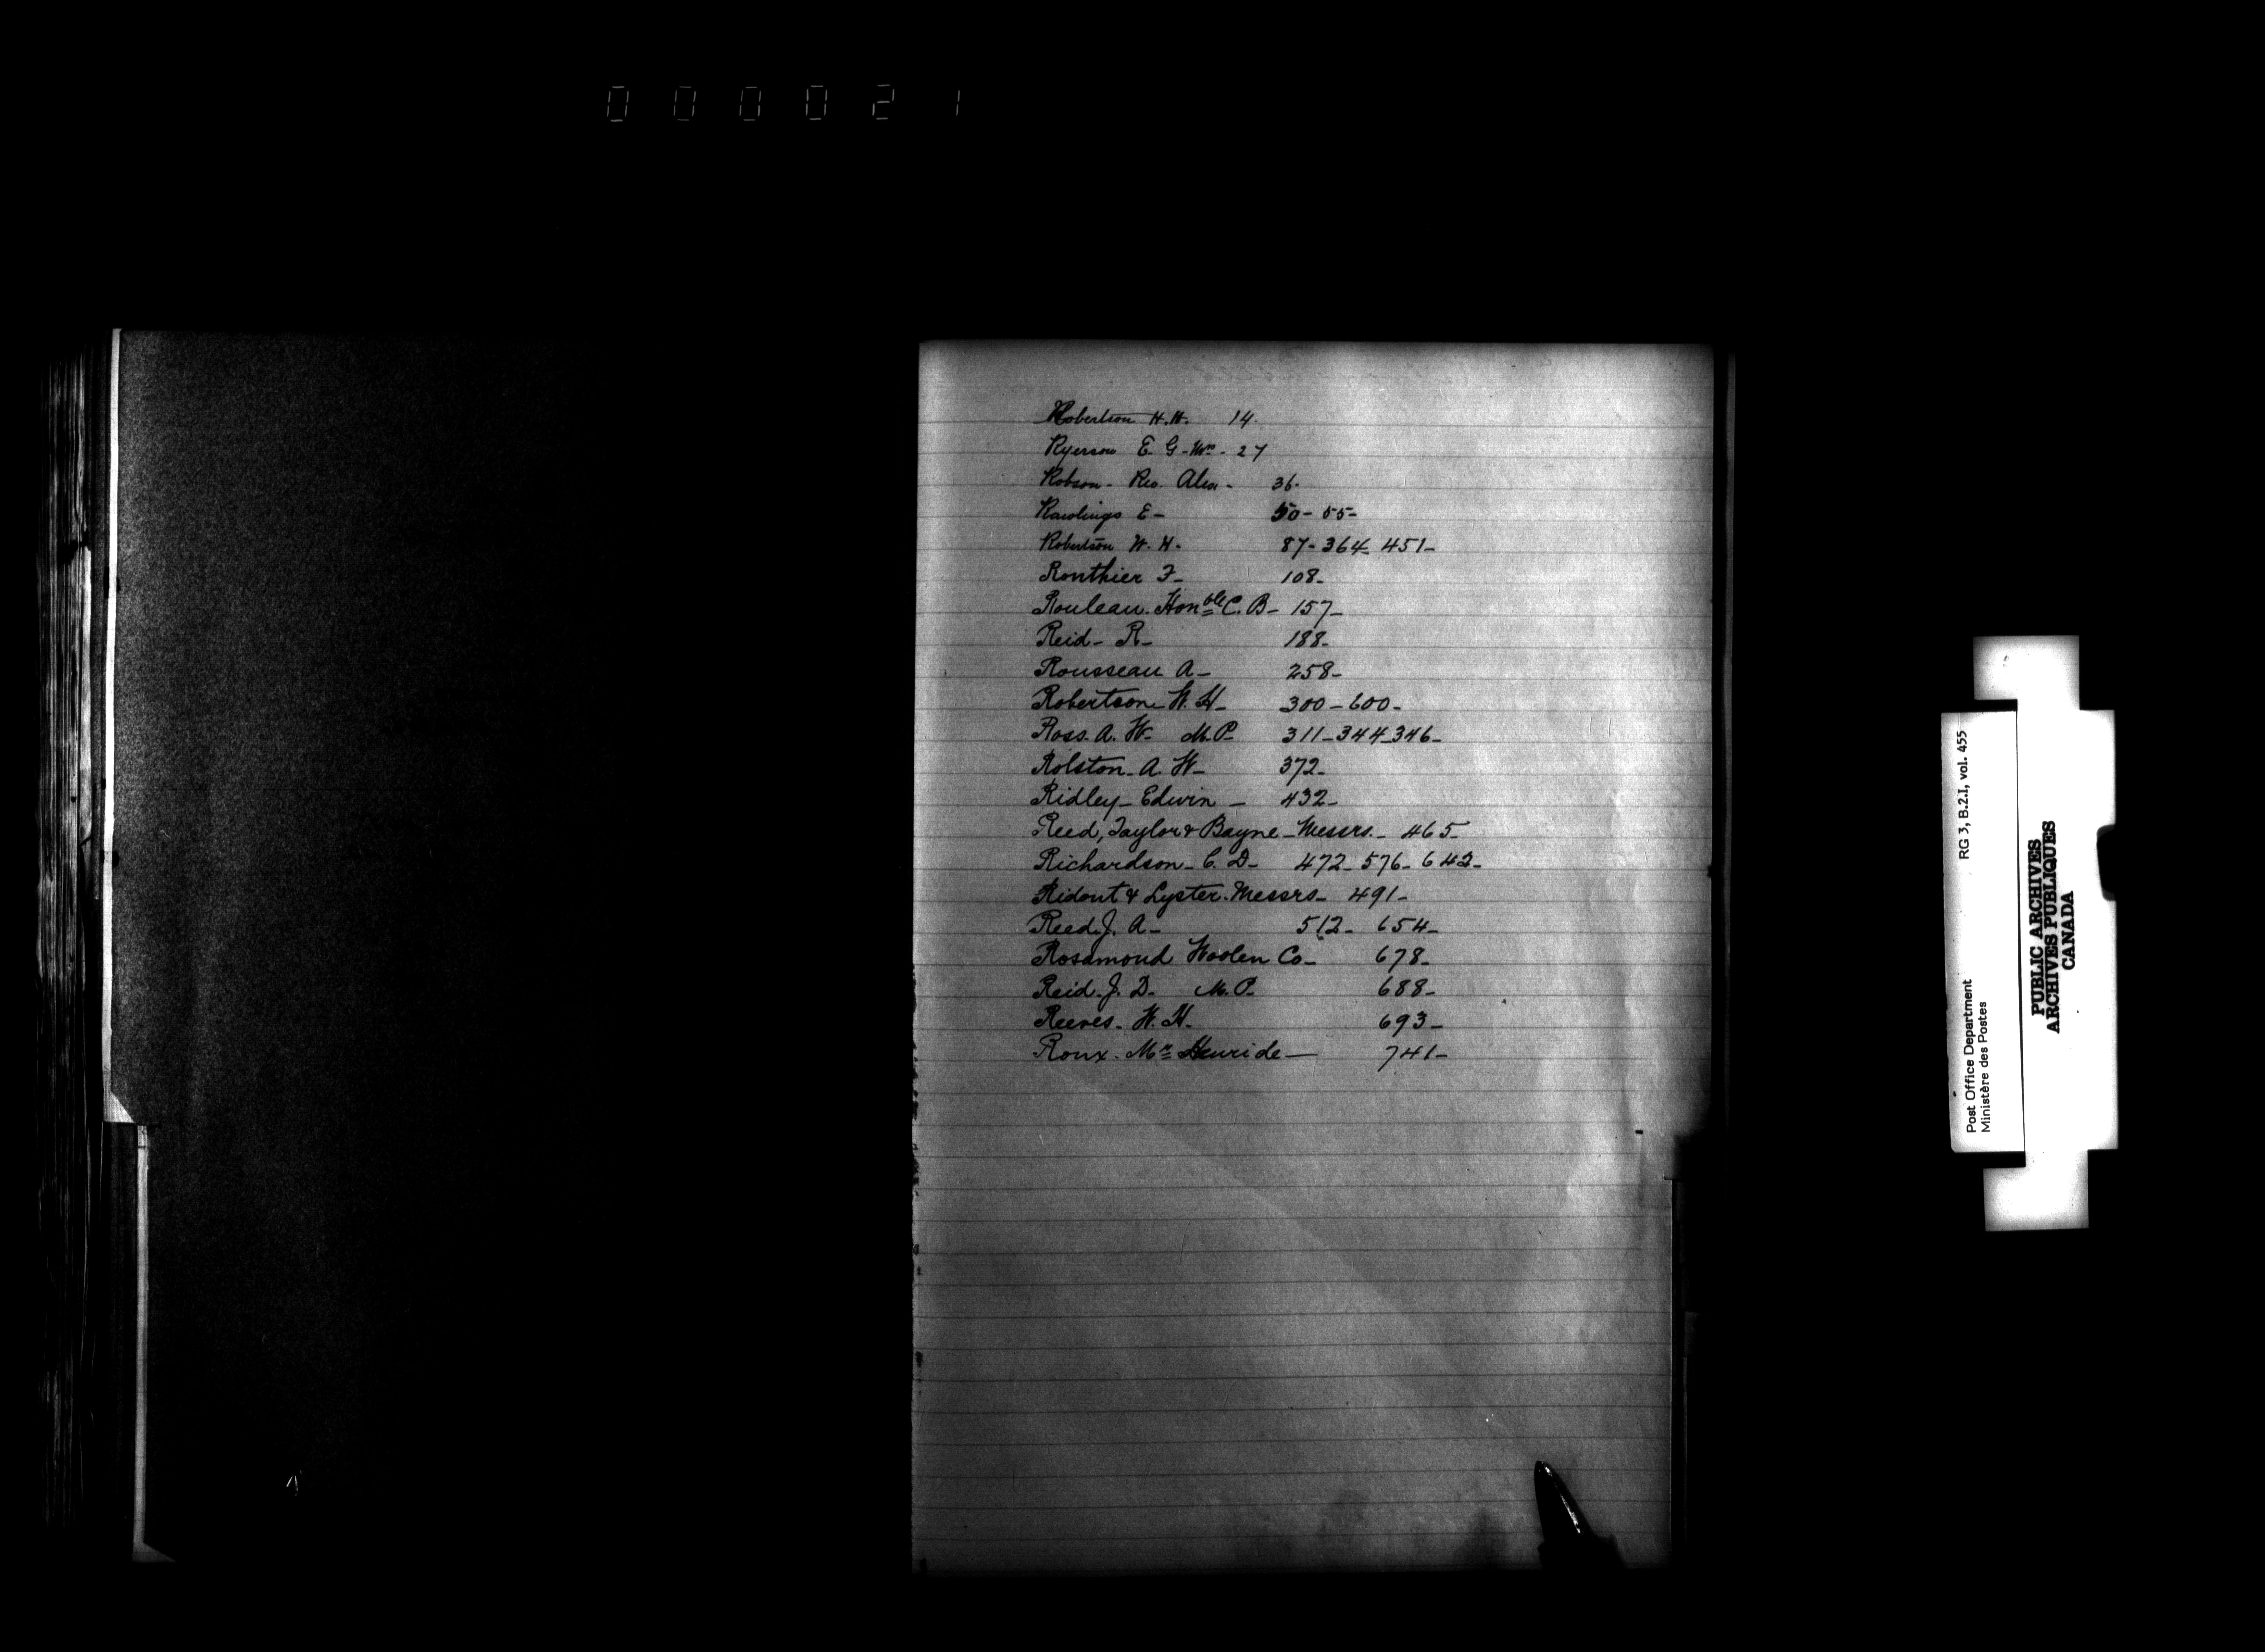 000021
Robertson H. H. 14.
Ryerson E. G. Mrs. - 27
Robson - Rev. Alex - 36.
Rawlings E - 50 - 55 -
Robertson W. H. 87 - 364 - 451 -
Routhier F - 108 -
Rouleau. Honble C. B - 157 -
Reid - R - 188 -
Rousseau A - 258 -
Robertson - W. H - 300 - 600 -
Ross. A. W - M.P - 311 - 344 - 346 -
Rolston - A. W - 372 -
Ridley - Edwin - 432 -
Reed, Taylor & Bayne - Messrs. - 465 -
Richardson - C. D - 472 - 576 - 642 -
Ridout & Lyster. Messrs - 491 -
Reed. J. A - 512 - 654 -
Rosamond Woolen Co - 678 -
Reid. J. D - M. P. - 688 -
Reeves - W. H. 693 -
Roux. Mr Henri de — 741 -
Post Office Department RG 3, B.2.I, vol. 455
Ministère des Postes
PUBLIC ARCHIVES
ARCHIVES PUBLIQUES
CANADA